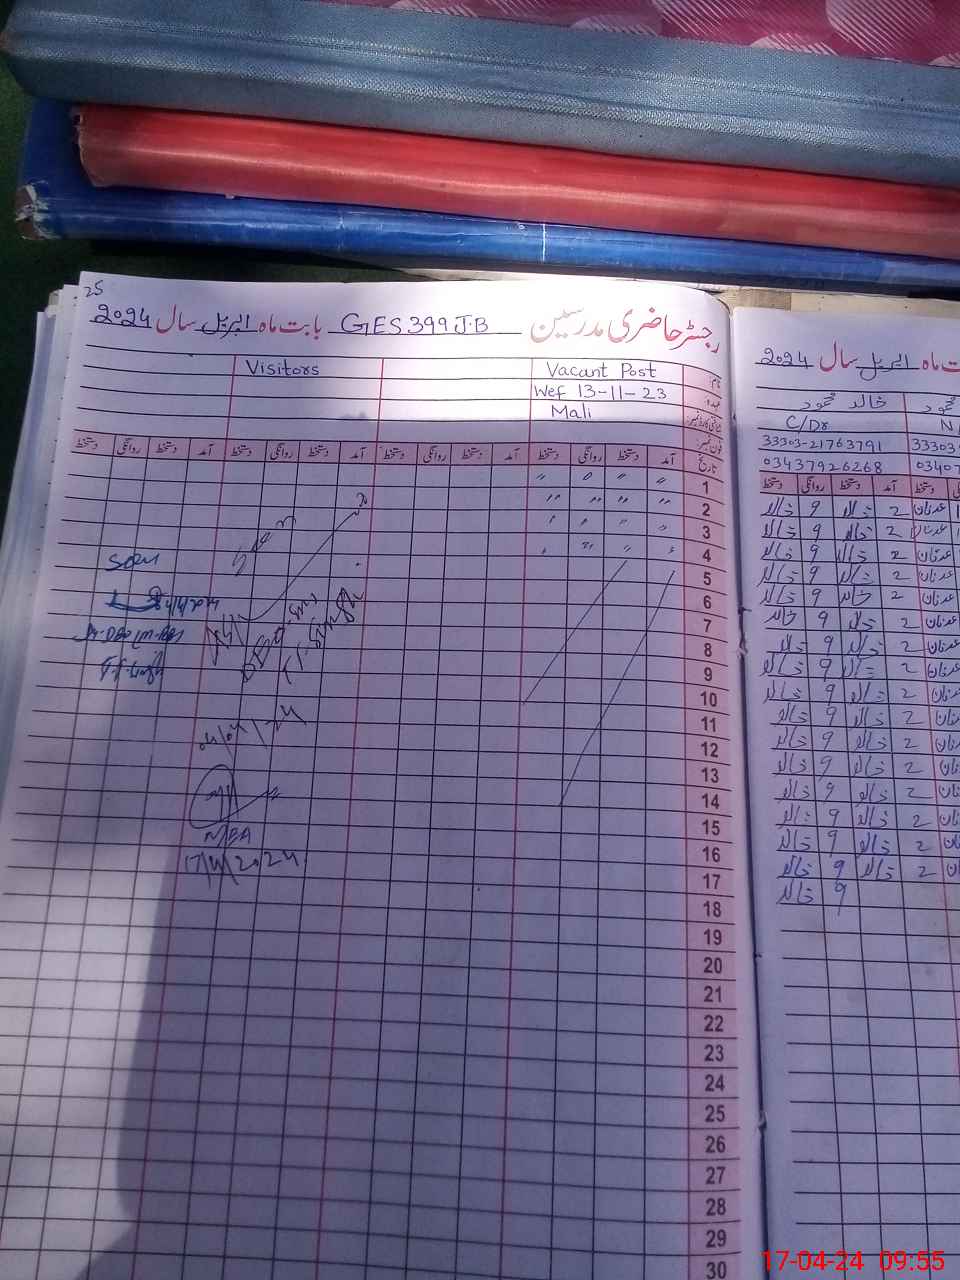 25
رجسٹر حاضری مدرسین GES 399 J.B بابت ماہ اپریل سال 2024
Visitors Vacant Post
نام:
Wef 13-11-23
عہدہ:
Mali
شناختی کارڈ نمبر:
فون نمبر:
تاریخ آمد دستخط روانگی دستخط آمد دستخط روانگی دستخط آمد دستخط روانگی دستخط آمد دستخط روانگی دستخط
1
2
3
4
5
6
7
8
9
10
11
12
13
14
15
16
17
18
19
20
21
22
23
24
25
26
27
28
29
30
04/04/24
17/4/2024
ماہ اپریل سال 2024
خالد محمود
محمود
C/Dr
33303-21763791
03437926268
آمد دستخط روانگی دستخط
عدنان 2 خالد 9 خالد
عدنان 2 خالد 9 خالد
عدنان 2 خالد 9 خالد
عدنان 2 خالد 9 خالد
عدنان 2 خالد 9 خالد
عدنان 2 خالد 9 خالد
2 خالد 9 خالد
2 خالد 9 خالد
2 خالد 9 خالد
2 خالد 9 خالد
2 خالد 9 خالد
2 خالد 9 خالد
2 خالد 9 خالد
2 خالد 9 خالد
2 خالد 9 خالد
2 خالد 9 خالد
9 خالد
17-04-24 09:55